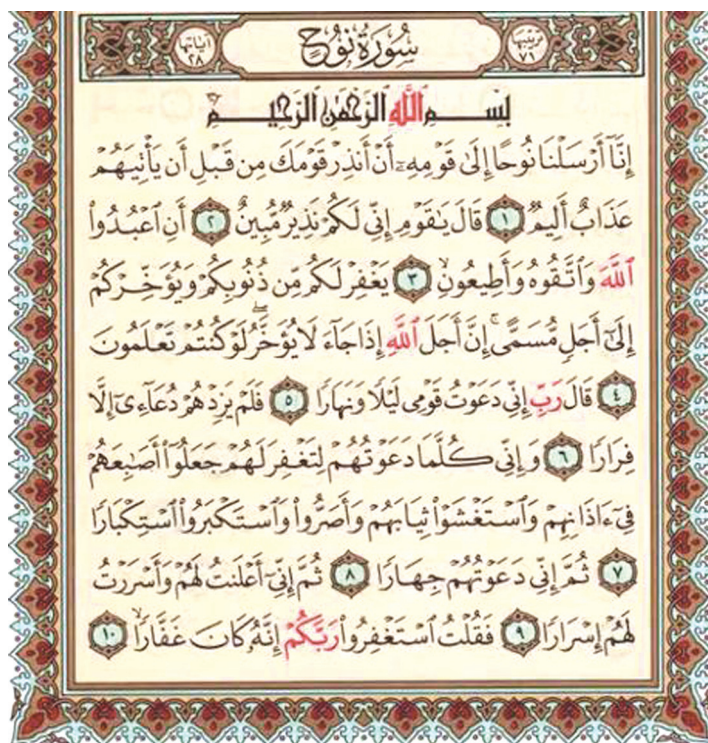 ترتيبها ٧١ سُورَةُ نُوحٍ آياتها ٢٨
بِسْمِ ٱللَّهِ ٱلرَّحْمَٰنِ ٱلرَّحِيمِ
إِنَّآ أَرْسَلْنَا نُوحًا إِلَىٰ قَوْمِهِۦٓ أَنْ أَنذِرْ قَوْمَكَ مِن قَبْلِ أَن يَأْتِيَهُمْ
عَذَابٌ أَلِيمٌ ١ قَالَ يَٰقَوْمِ إِنِّى لَكُمْ نَذِيرٌ مُّبِينٌ ٢ أَنِ ٱعْبُدُوا۟
ٱللَّهَ وَٱتَّقُوهُ وَأَطِيعُونِ ٣ يَغْفِرْ لَكُم مِّن ذُنُوبِكُمْ وَيُؤَخِّرْكُمْ
إِلَىٰٓ أَجَلٍ مُّسَمًّى ۚ إِنَّ أَجَلَ ٱللَّهِ إِذَا جَآءَ لَا يُؤَخَّرُ ۖ لَوْ كُنتُمْ تَعْلَمُونَ
٤ قَالَ رَبِّ إِنِّى دَعَوْتُ قَوْمِى لَيْلًا وَنَهَارًا ٥ فَلَمْ يَزِدْهُمْ دُعَآءِىٓ إِلَّا
فِرَارًا ٦ وَإِنِّى كُلَّمَا دَعَوْتُهُمْ لِتَغْفِرَ لَهُمْ جَعَلُوٓا۟ أَصَٰبِعَهُمْ
فِىٓ ءَاذَانِهِمْ وَٱسْتَغْشَوْا۟ ثِيَابَهُمْ وَأَصَرُّوا۟ وَٱسْتَكْبَرُوا۟ ٱسْتِكْبَارًا
٧ ثُمَّ إِنِّى دَعَوْتُهُمْ جِهَارًا ٨ ثُمَّ إِنِّىٓ أَعْلَنتُ لَهُمْ وَأَسْرَرْتُ
لَهُمْ إِسْرَارًا ٩ فَقُلْتُ ٱسْتَغْفِرُوا۟ رَبَّكُمْ إِنَّهُۥ كَانَ غَفَّارًا ١٠